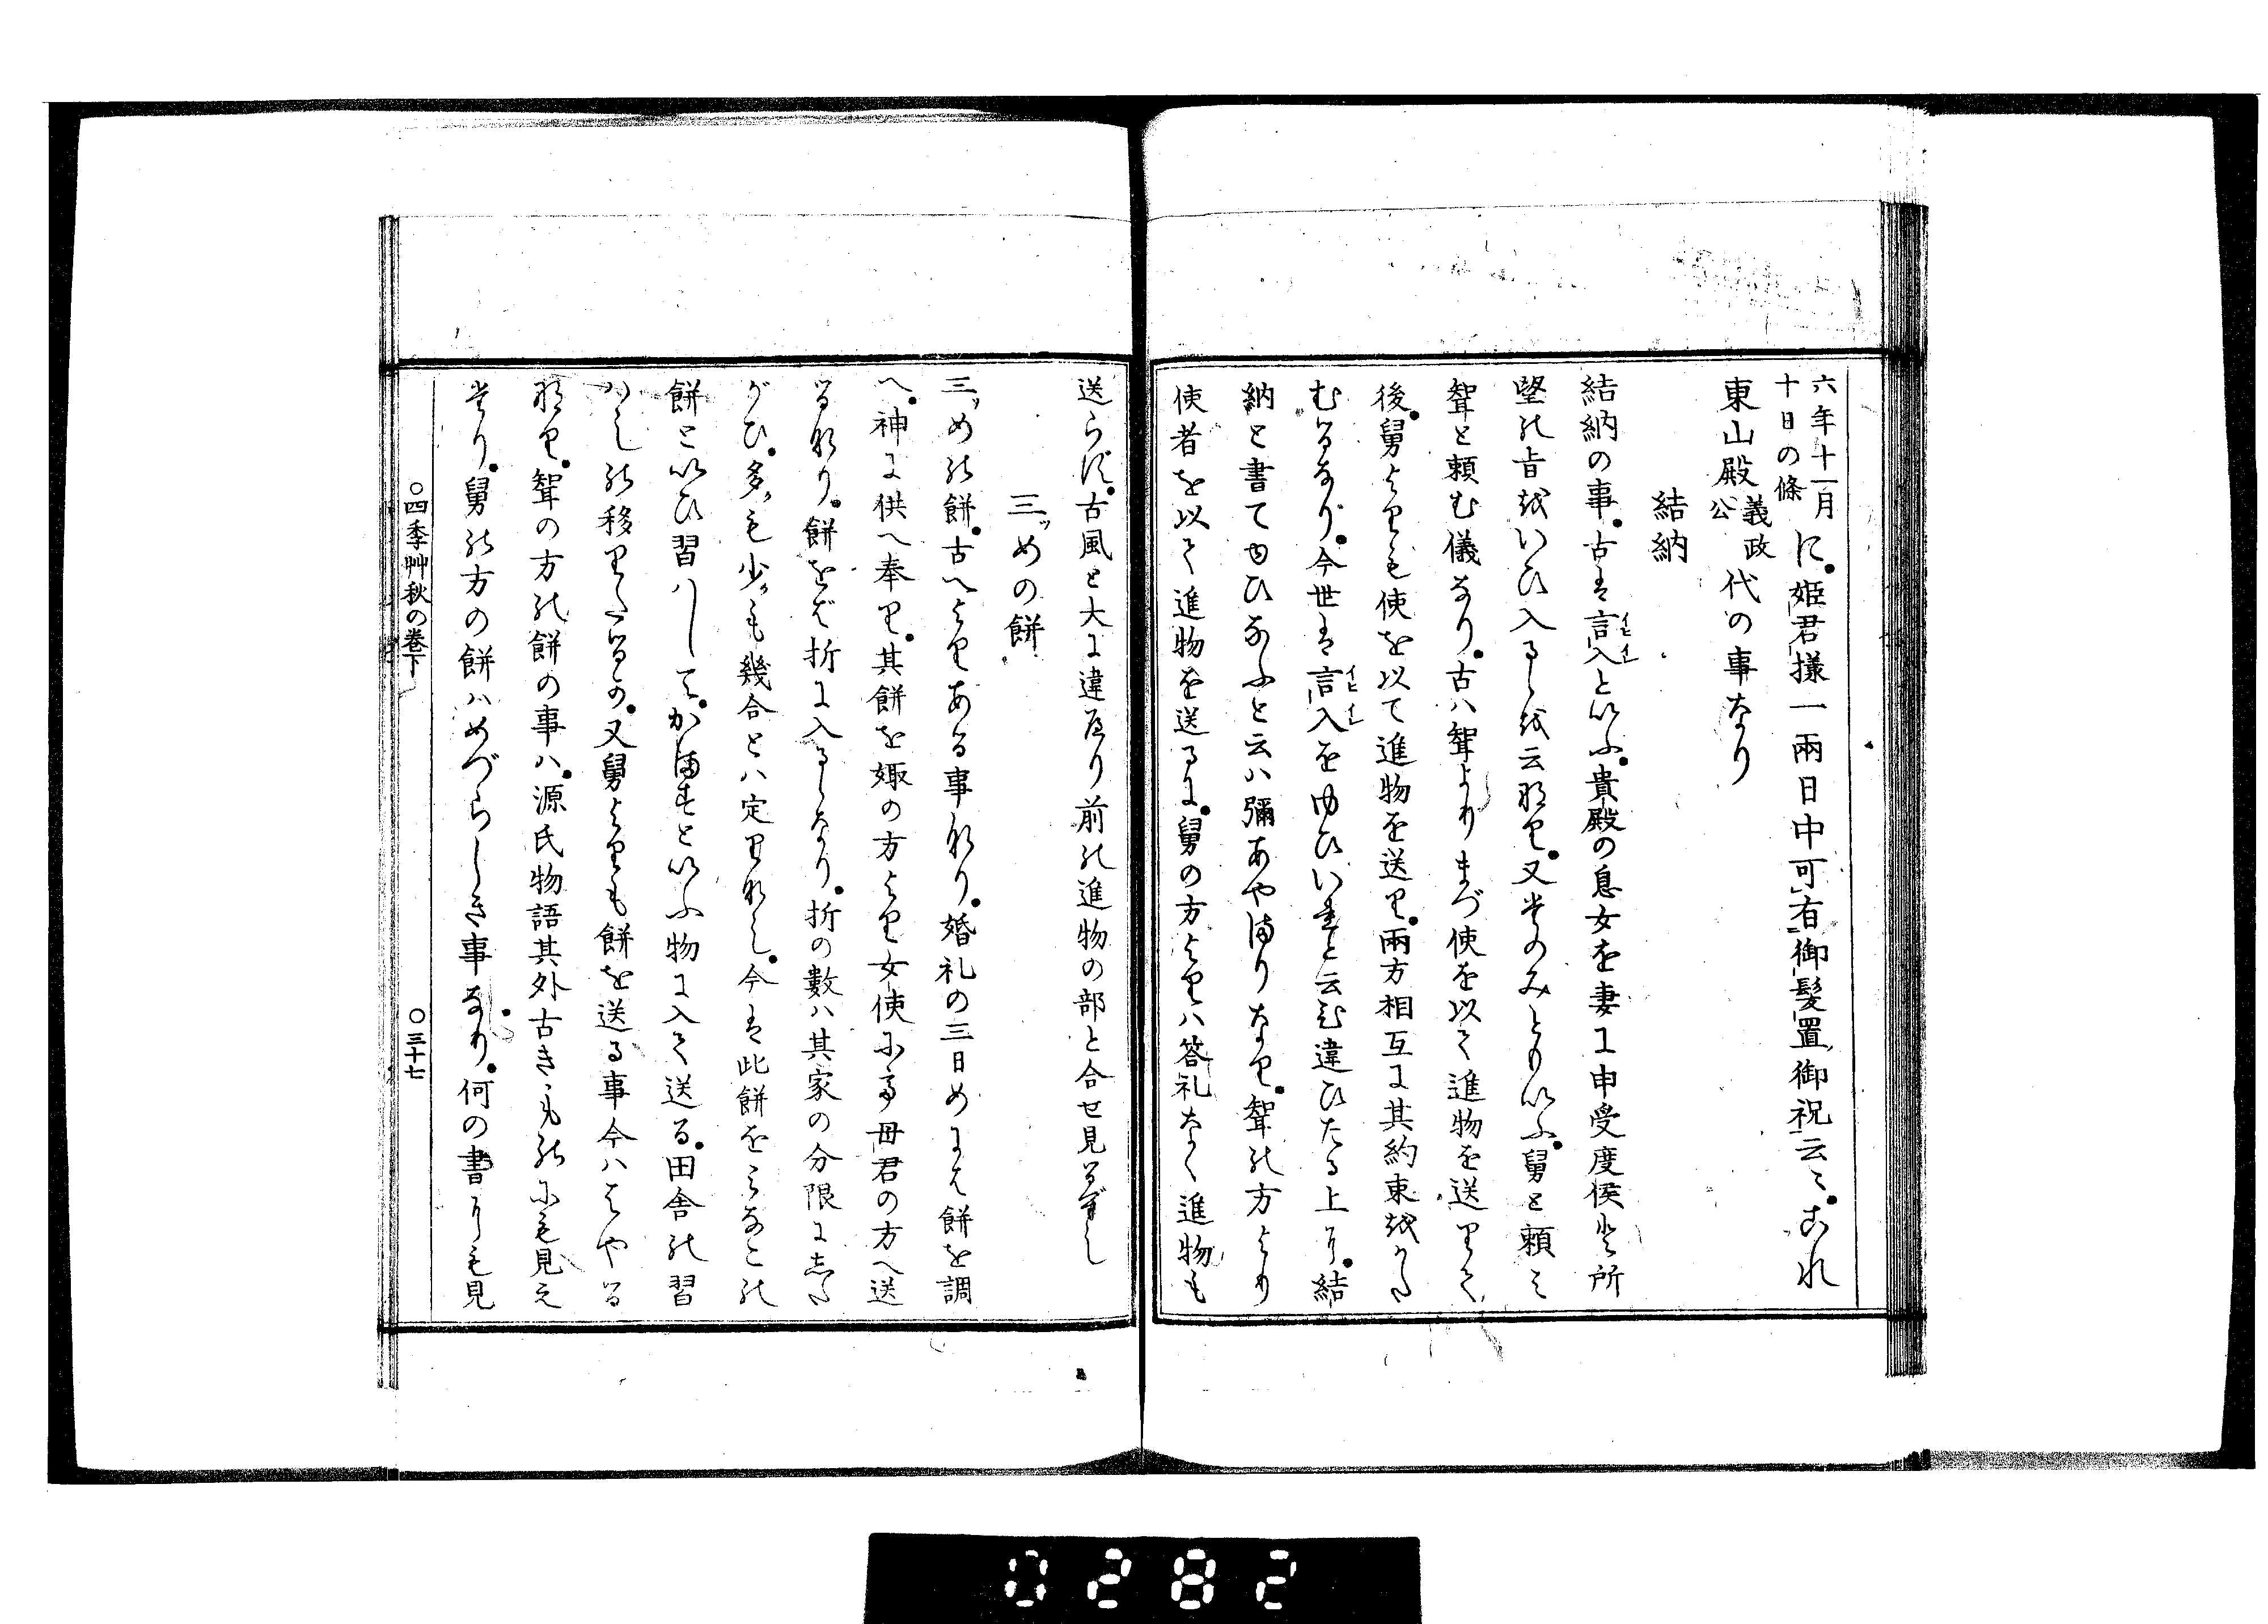 六年十一月
十日の條に。姫君様一兩日中可有御髪置御祝云〻。これ
東山殿義政公代の事なり
結納
結納の事。古は言入といふ。貴殿の息女を妻に申受度候と所
望の旨をいひ入るゝを云なり。又たのみともいふ。舅と頼み
聟と頼む儀なり。古ハ聟よりまづ使を以て進物を送りて
後。舅よりも使を以て進物を送り。兩方相互に其約束をかた
むるなり。今世は言入をゆひいれと云ひ違ひたる上に。結
納と書てゆひなふと云ハ彌あやまりなり。聟の方より
使者を以て進物を送るに。舅の方よりハ答礼なく進物も
送らず。古風と大に違へり前の進物の部と合せ見るべし
三ッめの餅
三ッめの餅。古へよりある事なり。婚礼の三日めには餅を調
へ。神に供へ奉り。其餅を娵の方より女使にて母君の方へ送
るなり。餅をば折に入るゝなり。折の數ハ其家の分限にした
がひ。多くも少くも幾合とハ定りなし。今は此餅をみかこの
餅といひ習ハして。かますといふ物に入て送る。田舎の習
ハしの移りたるか。又舅よりも餅を送る事今ハはやる
なり。聟の方の餅の事ハ。源氏物語其外古きものにも見え
たり。舅の方の餅ハめづらしき事なり。何の書にも見
○四季艸秋の巻下
○三十七
0282